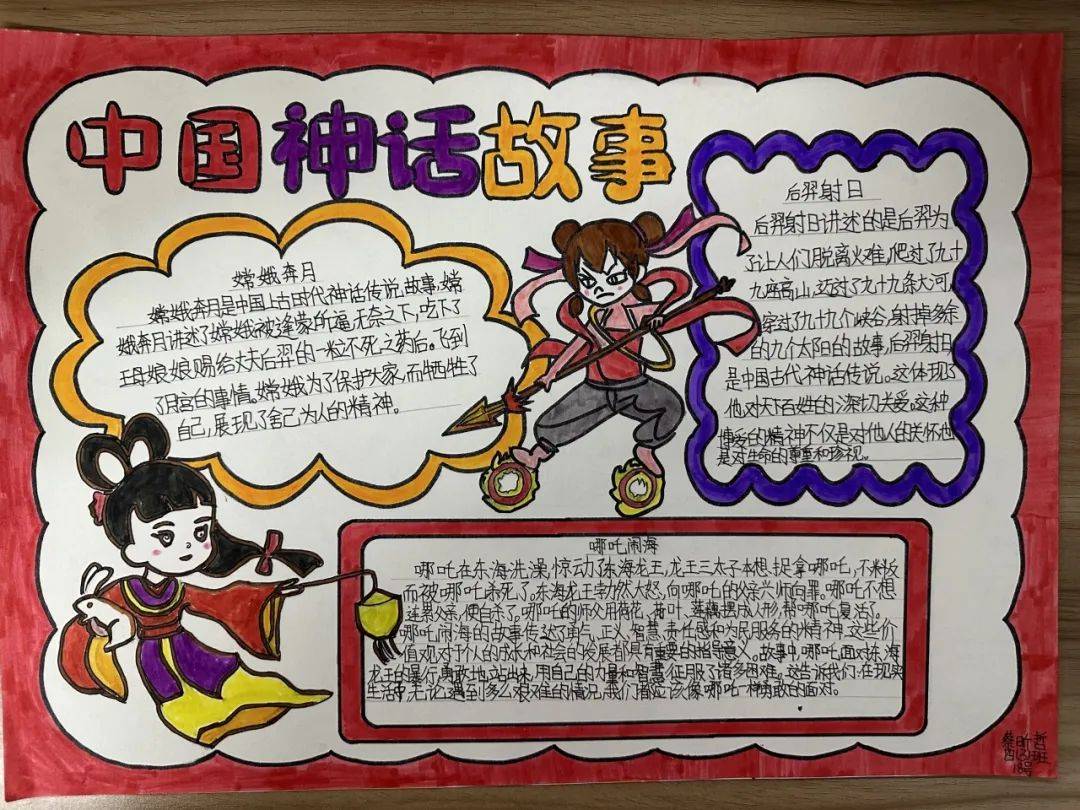 中国神话故事
嫦娥奔月
嫦娥奔月是中国上古时代神话传说故事,嫦
娥奔月讲述了嫦娥被逢蒙所逼,无奈之下,吃下了
王母娘娘赐给丈夫后羿的一粒不死之药后。飞到
了月宫的事情。嫦娥为了保护大家,而牺牲了
自己,展现了舍己为人的精神。
后羿射日
后羿射日讲述的是后羿为
了让人们脱离火难,爬过了九十
九座高山,迈过了九十九条大河,
穿过了九十九个峡谷,射掉多余
的九个太阳的故事,后羿射日
是中国古代神话传说。这体现了
他对天下百姓的深切关爱。这种
博爱的精神不仅是对他人的关怀也
是对生命的尊重和珍视。
哪吒闹海
哪吒在东海洗澡,惊动了东海龙王,龙王三太子本想捉拿哪吒,不料反
而被哪吒杀死了。东海龙王勃然大怒,向哪吒的父亲兴师问罪。哪吒不想
连累父亲,便自杀了。哪吒的师父用荷花、荷叶、莲藕摆成人形,帮哪吒复活了。
哪吒闹海的故事传达了勇气、正义、智慧、责任感和为民服务的精神,这些价
值观对于个人的成长和社会的发展都具有重要的指导意义。故事中,哪吒面对东海
龙王的暴行,勇敢地站出来,用自己的力量和智慧征服了诸多困难。这告诉我们:在现实
生活中,无论遇到多么艰难的情况,我们都应该像哪吒一样勇敢的面对。
昕哲
四(3)班
18号